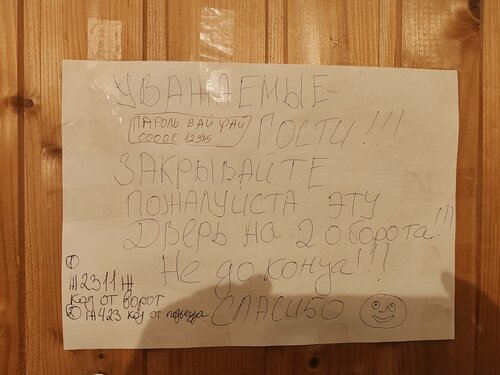 УВАЖАЕМЫЕ
ПАРОЛЬ ВАЙ ФАЙ
00000 12345
ГОСТИ!!!
ЗАКРЫВАЙТЕ
ПОЖАЛУЙСТА ЭТУ
ДВЕРЬ НА 2 оборота!!!
Не до конца!!!
СПАСИБО
①
Ж2311Ж
код от ворот
② Ж423 код от подъезда